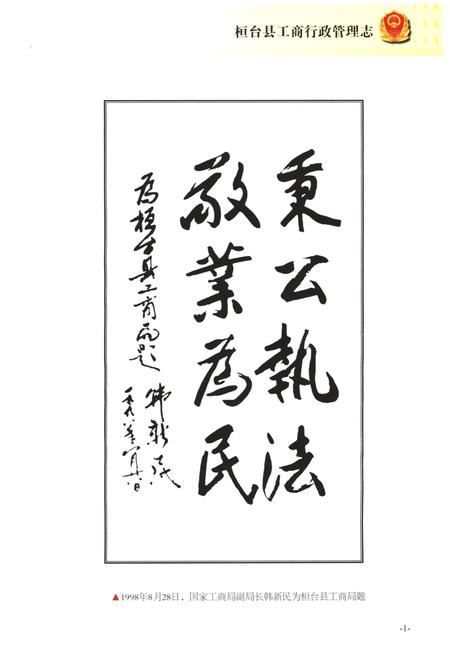 桓台县工商行政管理志
秉公執法
敬業為民
為桓台县工商局题
韩新民
一九九八年八月廿八日
▲1998年8月28日，国家工商局副局长韩新民为桓台县工商局题
-1-